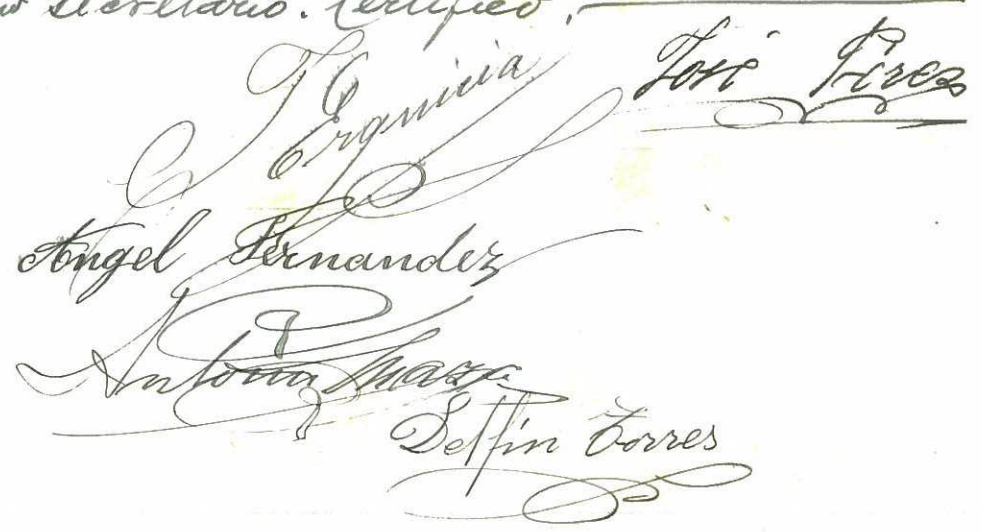 Secretario. Certifico.
José Pérez
Angel Fernandez
Antonio
Delfín Torres